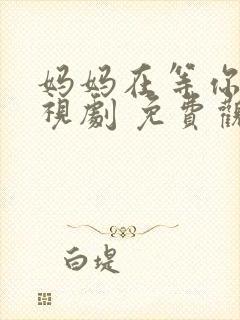 妈妈在等你
視劇 免費觀
白堤